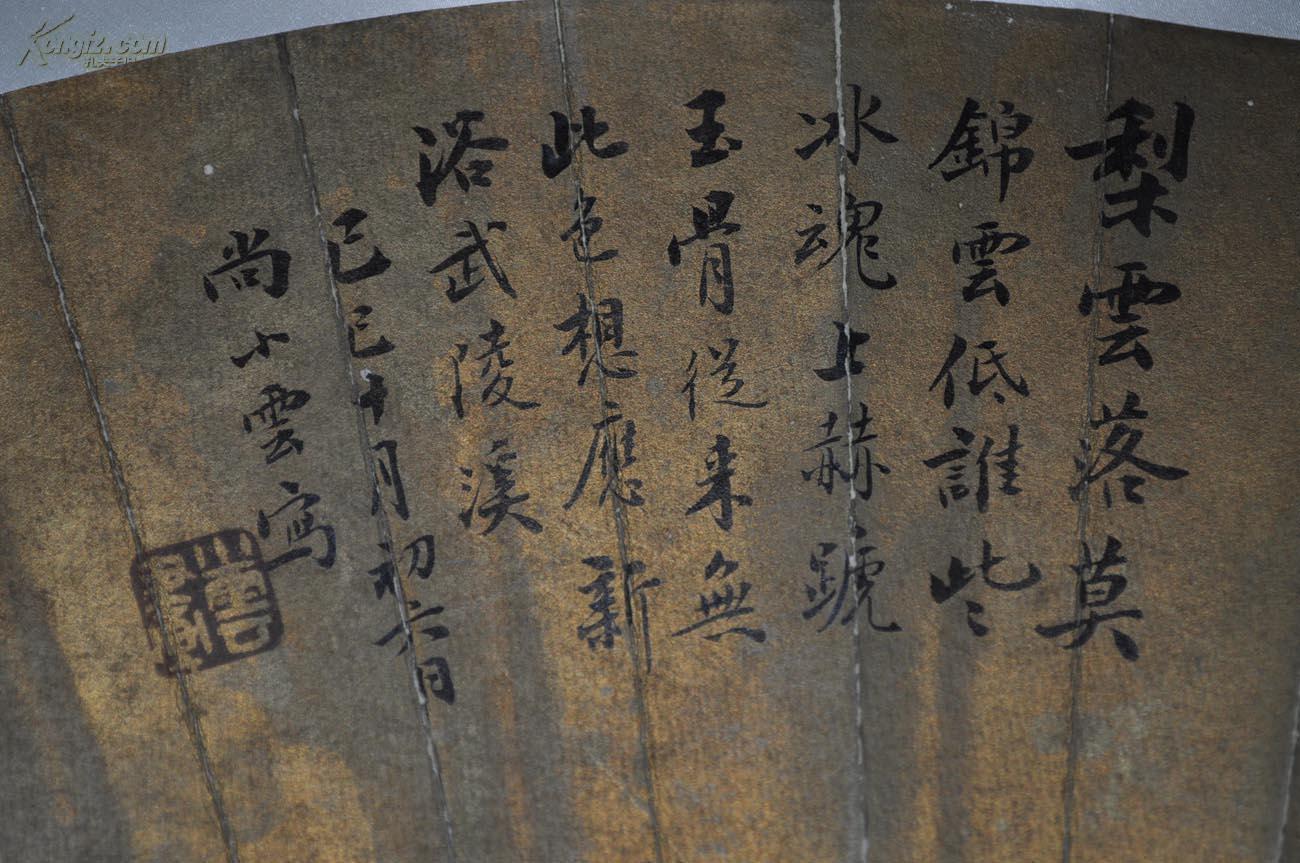 梨雲落莫
錦雲低誰些
冰魂上赫蹏
玉骨從来無
此色想應新
浴武陵溪
己巳十月初六日
尚小雲寫
Kongfz.com